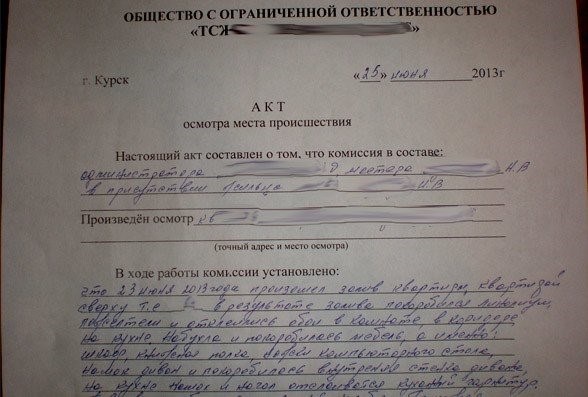 ОБЩЕСТВО С ОГРАНИЧЕННОЙ ОТВЕТСТВЕННОСТЬЮ
«ТСЖ »
г. Курск «25» июня 2013г
А К Т
осмотра места происшествия
Настоящий акт составлен о том, что комиссия в составе:
администратора мастера Н.В
в присутствии жильца
Произведён осмотр
(точный адрес и место осмотра)
В ходе работы комиссии установлено:
Что 23 июня 2013 года произошел залив квартиры, квартирой
сверху т.е в результате залива покоробился линолеум
и отклеились обои в комнате, в коридоре
На кухне набухла и покоробилась мебель, а именно:
шкаф, книжная полка, компьютерного стола
Намок диван и покоробилась внутренняя стенка дивана,
на кухне намок и начал отслаиваться кухонный гарнитур.